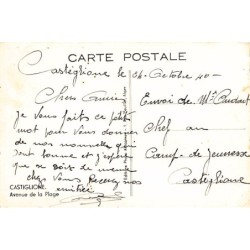 CARTE POSTALE
Castiglione le 04 Octobre 40 -
Chers Amis
Je vous fais ce petit
mot pour vous donner
de mes nouvelles qui
sont bonne et j'espère
que se soit de même
chez vous Recevez nos
amitiés
Envoi de Mr
Chef au
Camp de Jeunesse
Castiglione
CASTIGLIONE.
Avenue de la Plage